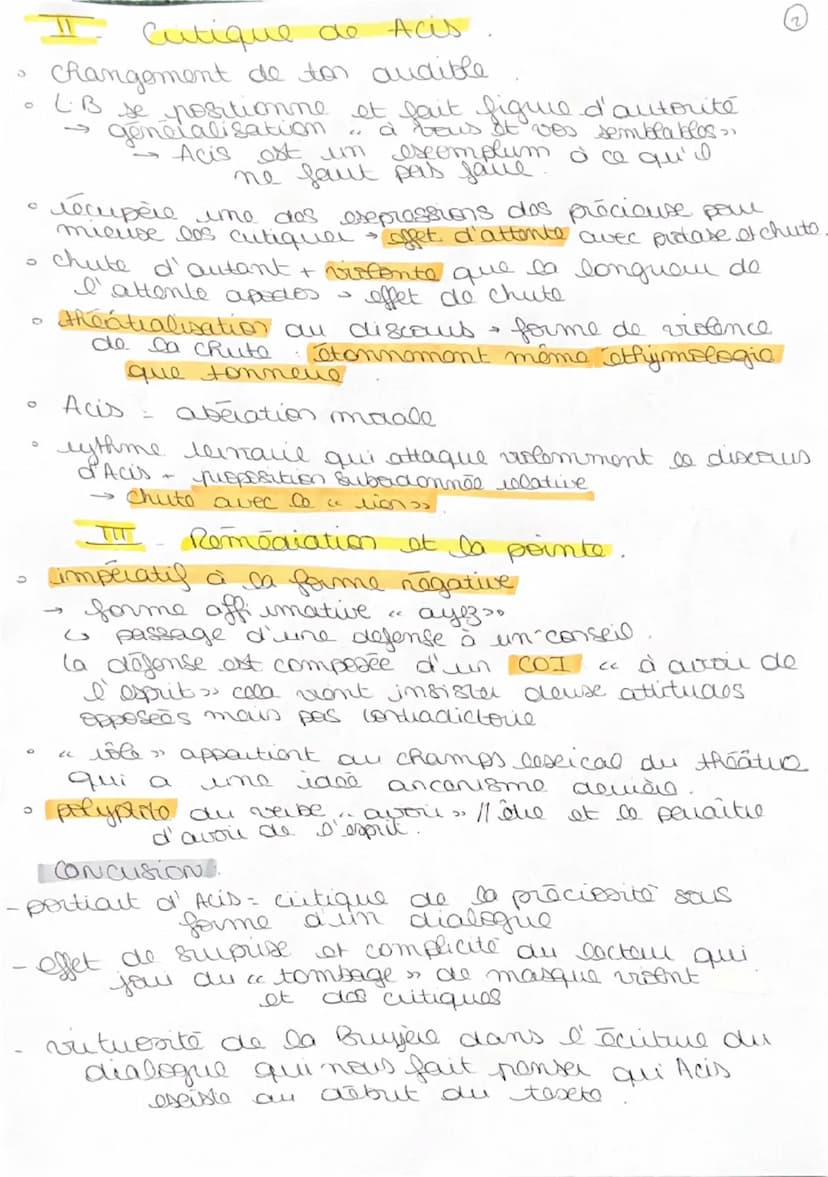 2
II Critique de Acis.
◦ Changement de ton audible.
◦ L.B se positionne et fait figure d'autorité
→ généralisation " à vous et vos semblables "
→ Acis est un exemplum à ce qu'il
ne faut pas faire.
◦ récupère une des expressions des précieuse pour
mieux les critiquer → effet d'attente avec protase et chute.
◦ chute d'autant + violente que la longueur de
l'attente → effet de chute
◦ théâtralisation du discours → forme de violence
de la chute : étonnamment même éthymologie
que tonnerre
◦ Acis = abération morale
◦ rythme ternaire qui attaque violemment le discours
d'Acis + proposition subordonnée relative
→ Chute avec le " rien "
III - Remédiation et la pointe.
◦ impératif à la forme négative
→ forme affirmative " ayez "
↳ passage d'une défense à un conseil.
La défense est composée d'un COI " à avoir de
l'esprit " cela vient insister deux attitudes
opposées mais pas contradictoire
◦ " rôle " appartient au champs lexical du théâtre
qui a une idée derrière.
◦ polyptote du verbe " avoir " // être et le paraître
d'avoir de l'esprit.
CONCUSION.
- portrait d'Acis = critique de la préciosité sous
forme d'un dialogue
- effet de surprise et complicité du lecteur qui
joui du " tombage " de masque violent
et des critiques
- virtuosité de la Bruyère dans l'écriture du
dialogue qui nous fait penser qui Acis
existe au début du texte.